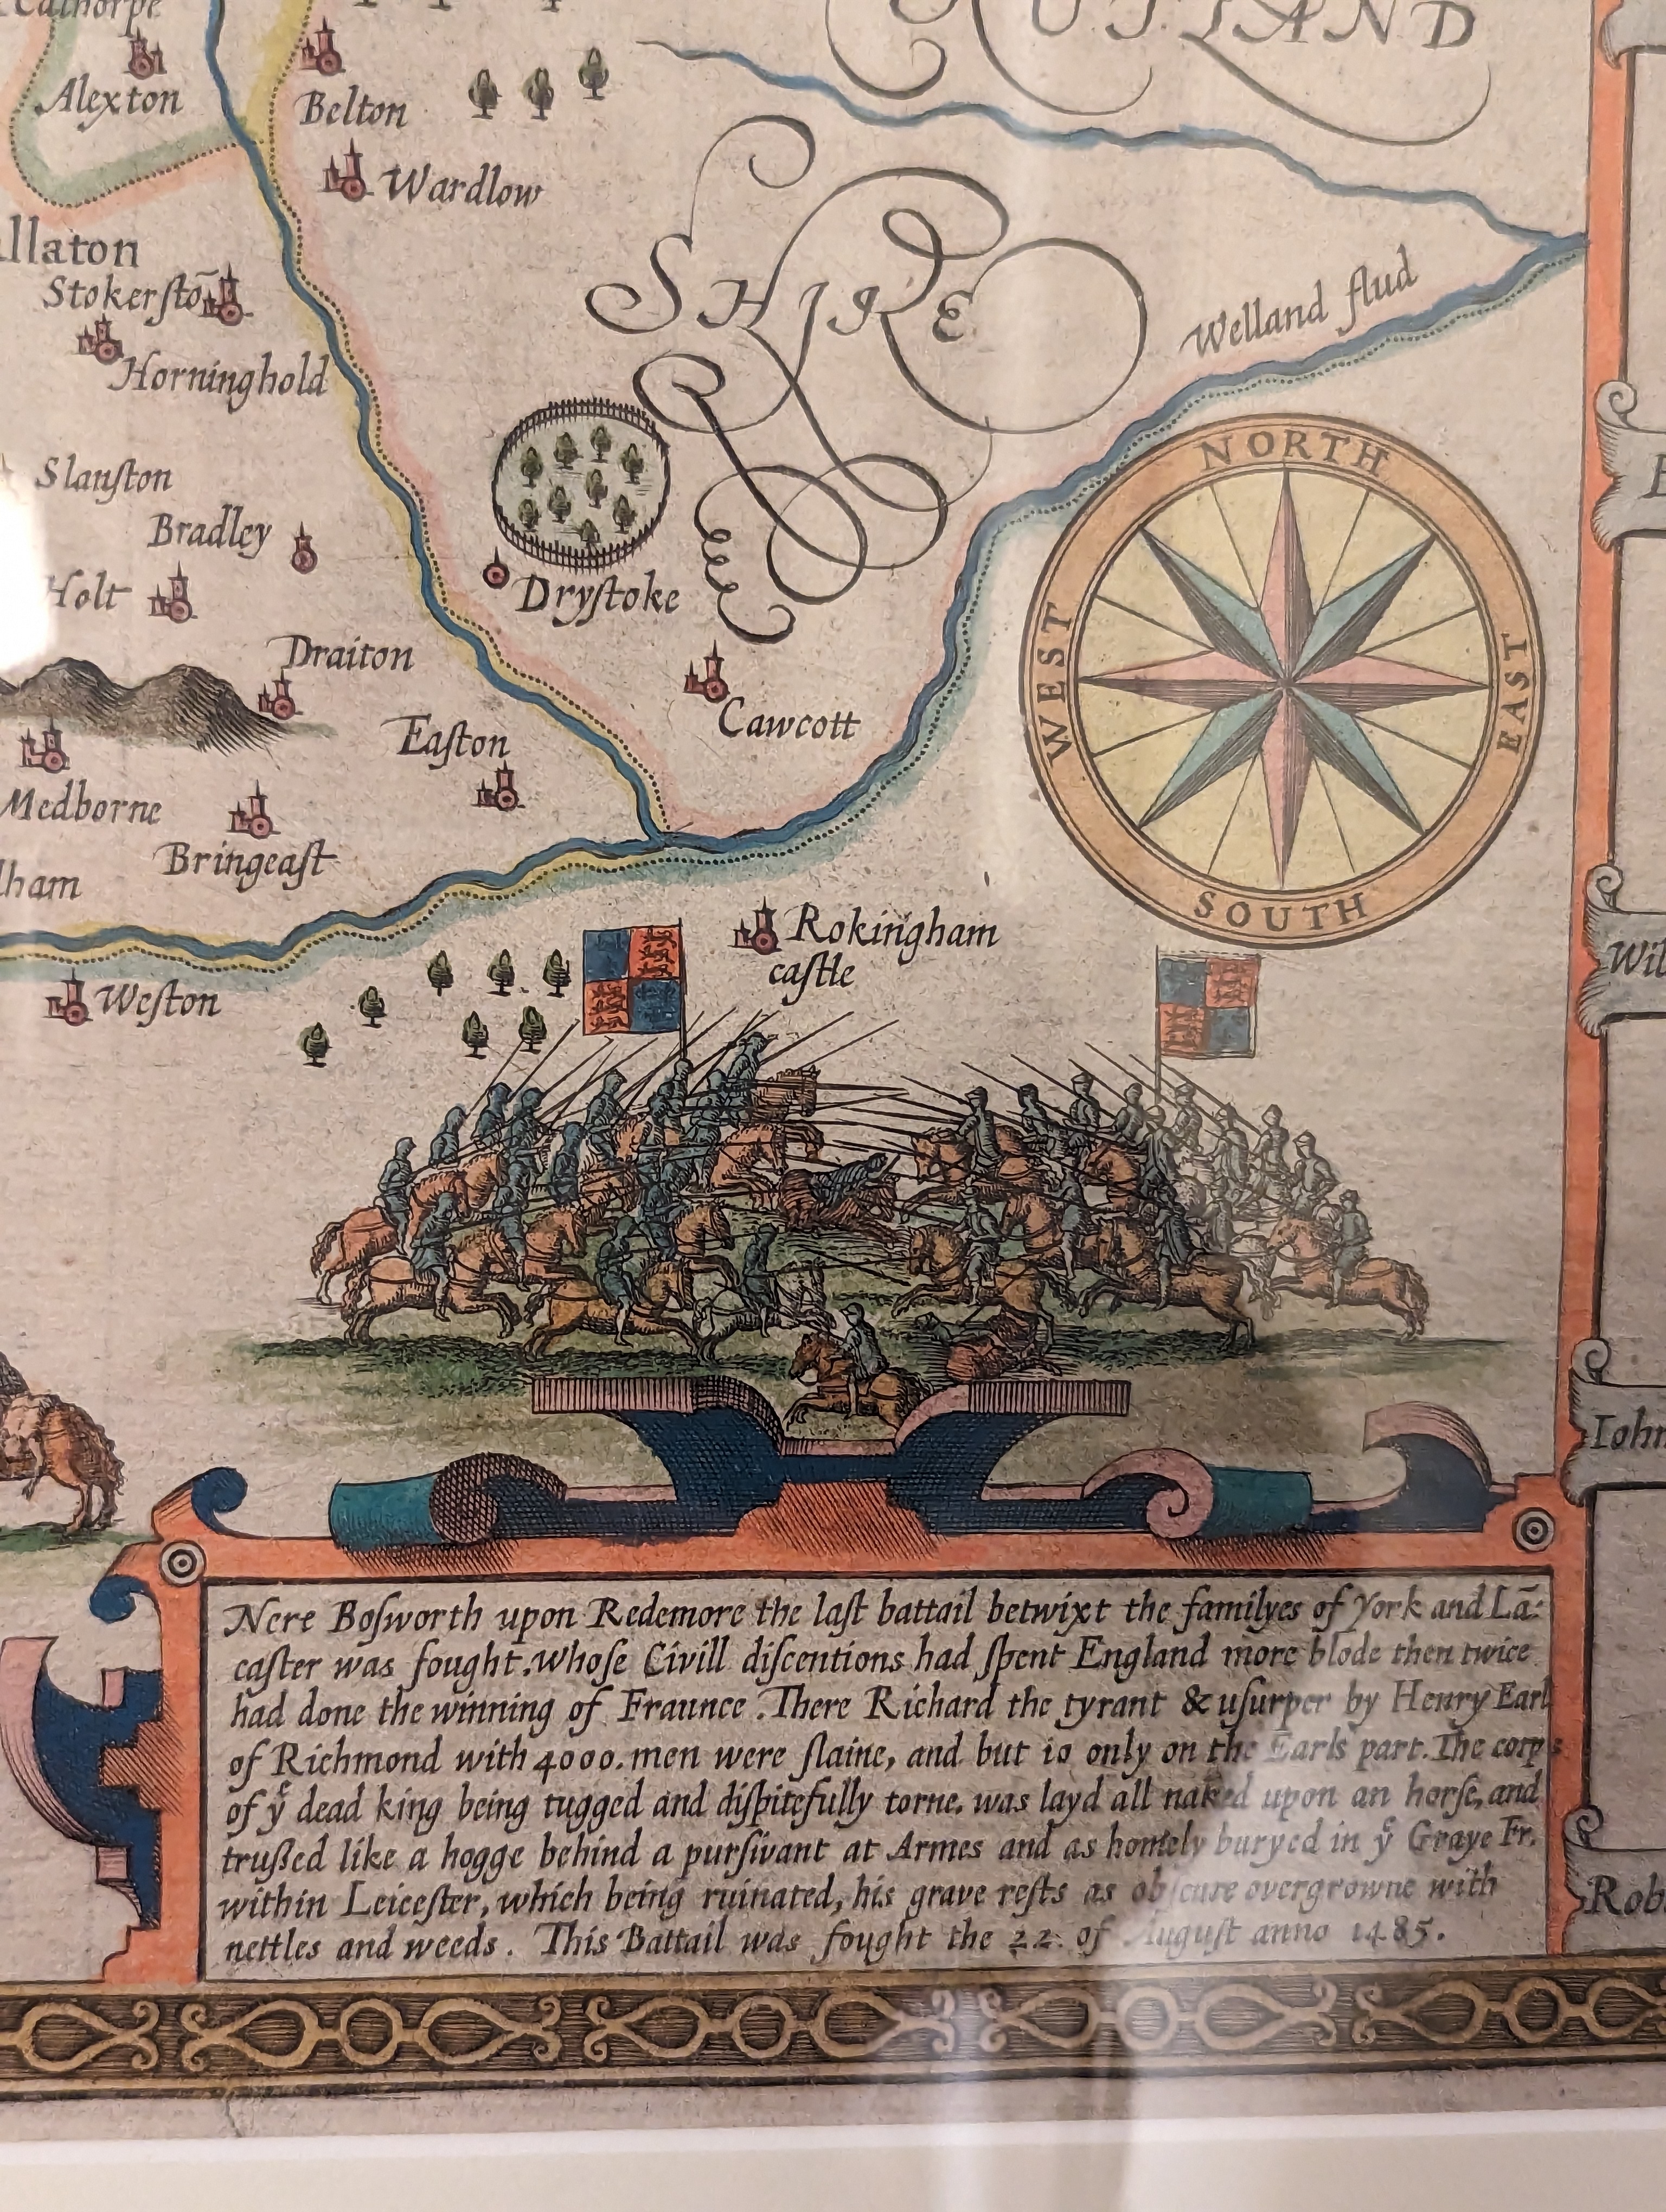 RUTLAND
Alexton
Belton
Wardlow
SHIRE
Stokerstō
Horninghold
Welland flud
NORTH
WEST
EAST
SOUTH
Slauſton
Bradley
Holt
Dryſtoke
Draiton
Cawcott
Eaſton
Medborne
Bringeaſt
Rokingham
caſtle
Weſton
Nere Boſworth upon Redemore the laſt battail betwixt the familyes of York and Lā:
caſter was fought. whoſe Civill diſcentions had ſpent England more blode then twice
had done the winning of Fraunce. There Richard the tyrant & uſurper by Henry Earl
of Richmond with 4000. men were ſlaine, and but 10 only on the Earls part. The corps
of yͤ dead king being tugged and diſpitefully torne. was layd all naked upon an horſe, and
trußed like a hogge behind a purſivant at Armes and as homely buryed in yͤ Graye Fr.
within Leiceſter, which being ruinated, his grave reſts as obſcure overgrowne with
nettles and weeds. This Battail was fought the 22. of Auguſt anno 1485.